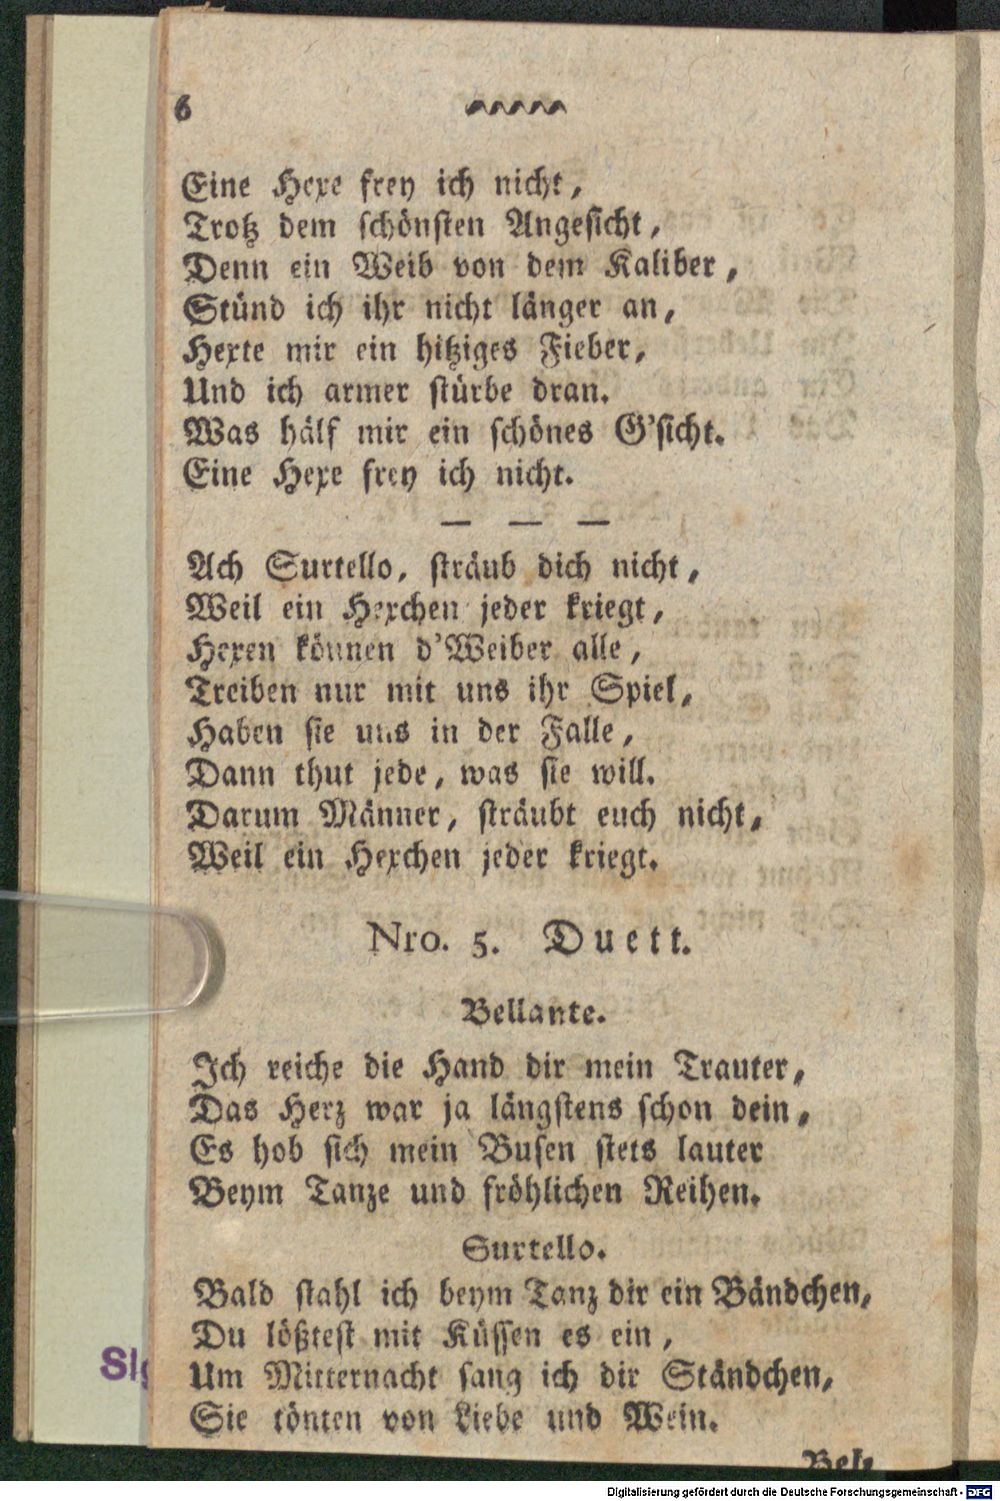 6
Eine Hexe frey ich nicht,
Trotz dem schönsten Angesicht,
Denn ein Weib von dem Kaliber,
Stünd ich ihr nicht länger an,
Hexte mir ein hitziges Fieber,
Und ich armer stürbe dran.
Was hälf mir ein schönes G'sicht.
Eine Hexe frey ich nicht.
— — —
Ach Surtello, sträub dich nicht,
Weil ein Hexchen jeder kriegt,
Hexen können d'Weiber alle,
Treiben nur mit uns ihr Spiel,
Haben sie uns in der Falle,
Dann thut jede, was sie will.
Darum Männer, sträubt euch nicht,
Weil ein Hexchen jeder kriegt.
Nro. 5. Duett.
Bellante.
Ich reiche die Hand dir mein Trauter,
Das Herz war ja längstens schon dein,
Es hob sich mein Busen stets lauter
Beym Tanze und fröhlichen Reihen.
Surtello.
Bald stahl ich beym Tanz dir ein Bändchen,
Du lößtest mit Küssen es ein,
Um Mitternacht sang ich dir Ständchen,
Sie tönten von Liebe und Wein.
Digitalisierung gefördert durch die Deutsche Forschungsgemeinschaft - DFG